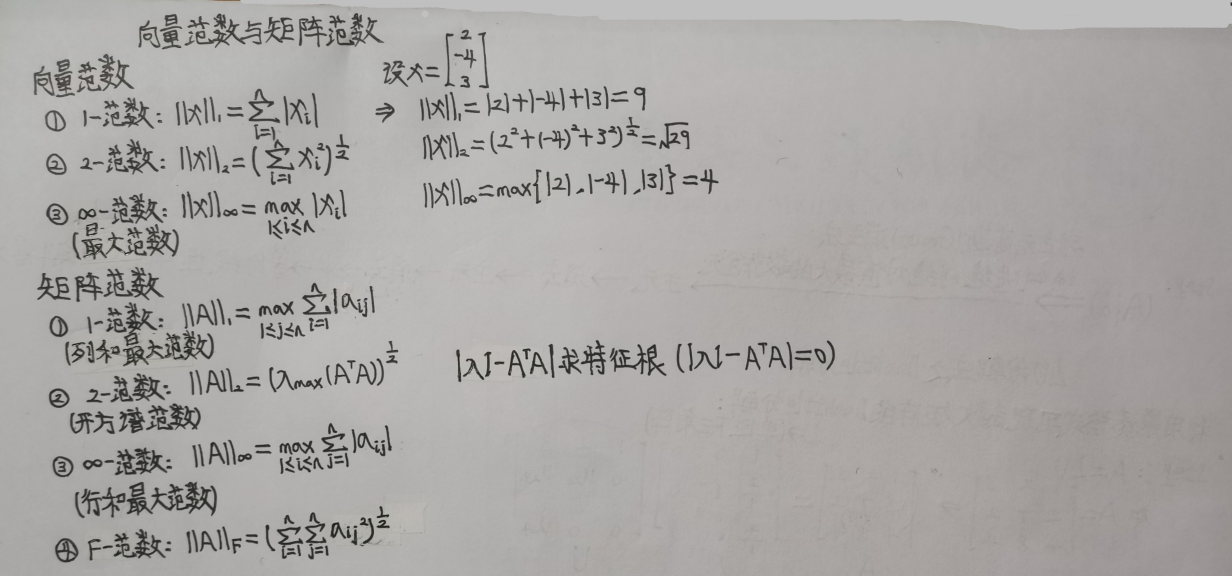 向量范数与矩阵范数
向量范数
① 1-范数: ||x||₁=∑ᵢ₌₁ⁿ|xᵢ|
② 2-范数: ||x||₂=(∑ᵢ₌₁ⁿxᵢ²)^½
③ ∞-范数: ||x||∞=max_{1≤i≤n}|xᵢ|
(最大范数)
设x=[2 -4 3]
⇒ ||x||₁=|2|+|-4|+|3|=9
||x||₂=(2²+(-4)²+3²)^½=√29
||x||∞=max{|2|、|-4|、|3|}=4
矩阵范数
① 1-范数: ||A||₁=max_{1≤j≤n}∑ᵢ₌₁ⁿ|aᵢⱼ|
(列和最大范数)
② 2-范数: ||A||₂=(λmax(AᵀA))^½
|λI-AᵀA|求特征根(|λI-AᵀA|=0)
(开方谱范数)
③ ∞-范数: ||A||∞=max_{1≤i≤n}∑ⱼ₌₁ⁿ|aᵢⱼ|
(行和最大范数)
④ F-范数: ||A||F=(∑ᵢ₌₁ⁿ∑ⱼ₌₁ⁿaᵢⱼ²)^½